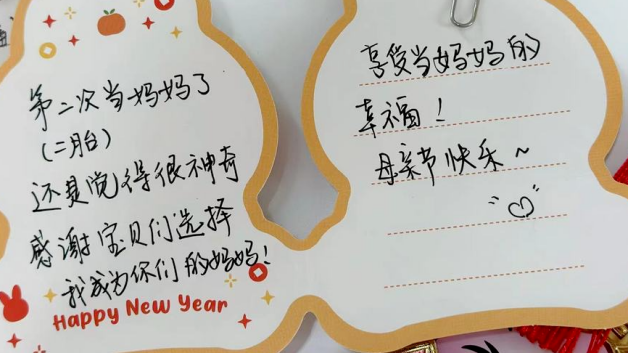 第二次当妈妈了
(二月台)
还是觉得很神奇
感谢宝贝们选择
我成为你们的妈妈!
Happy New Year
享受当妈妈的
幸福!
母亲节快乐~